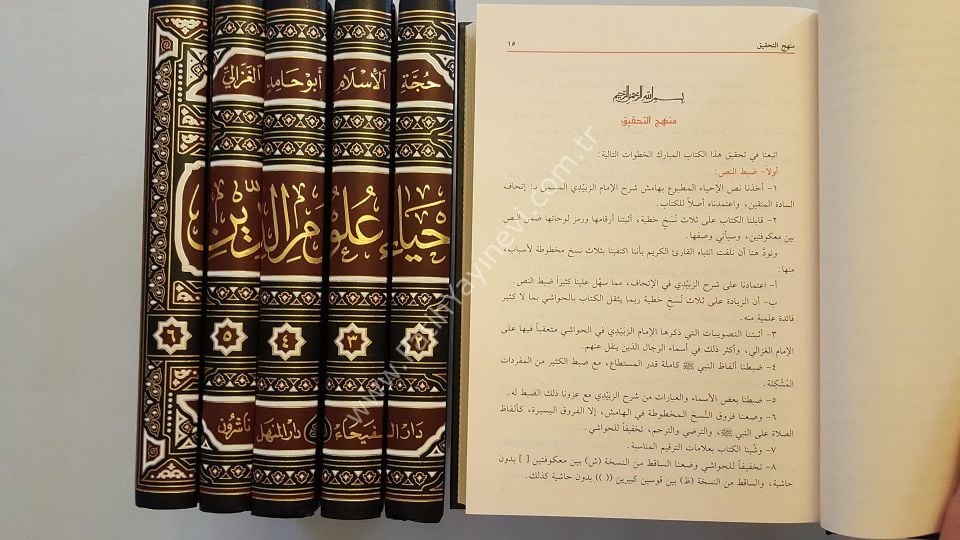 حُجَّة الإِسْلَام أَبُو حَامِد الغَزَالِيّ
حيَاء عُلُوم الدِّين
٢ ٣ ٤ ٥ ٦
دَار الفَيحَاء دَار المنهَل نَاشِرُون
منهج التحقيق ١٥
بسم الله الرحمن الرحيم
منهج التحقيق
اتبعنا في تحقيق هذا الكتاب المبارك الخطوات التالية:
أولاً- ضبط النص:
١- أخذنا نص الإحياء المطبوع بهامش شرح الإمام الزبيدي المسمى بـ: إتحاف
السادة المتقين، واعتمدناه أصلاً للكتاب.
٢- قابلنا الكتاب على ثلاث نُسَخٍ خطية، أثبتنا أرقامها ورمز لوحاتها ضمن النص
بين معكوفتين، وسيأتي وصفها.
ونودُّ هنا أن نلفت انتباه القارئ الكريم بأننا اكتفينا بثلاث نسخ مخطوطة لأسباب،
منها:
أ- اعتمادنا على شرح الزَّبِيْدي في الإتحاف، مما سهّل علينا كثيراً ضبط النص.
ب- أن الزيادة على ثلاث نُسَخٍ خطية ربما يثقل الكتاب بالحواشي بما لا كثير
فائدة علمية منه.
٣- أثبتنا التصويبات التي ذكرها الإمام الزبيدي في الحواشي متعقباً فيها على
الإمام الغزالي، وأكثر ذلك في أسماء الرجال الذين ينقل عنهم.
٤- ضبطنا ألفاظ النبي ﷺ كاملة قدر المستطاع، مع ضبط الكثير من المفردات
المُشْكلة.
٥- ضبطنا بعض الأسماء والعبارات من شرح الزَّبِيْدي مع عزونا ذلك الضبط له.
٦- وضعنا فروق النُّسخ المخطوطة في الهامش، إلا الفروق اليسيرة، كألفاظ
الصلاة على النبي ﷺ، والترضي والترحم، تخفيفاً للحواشي.
٧- وشّينا الكتاب بعلامات الترقيم المناسبة.
٨- تخفيفاً للحواشي وضعنا الساقط من النسخة (ش) بين معكوفتين [ ] بدون
حاشية، والساقط من النسخة (ظ) بين قوسين كبيرين (( )) بدون حاشية كذلك.